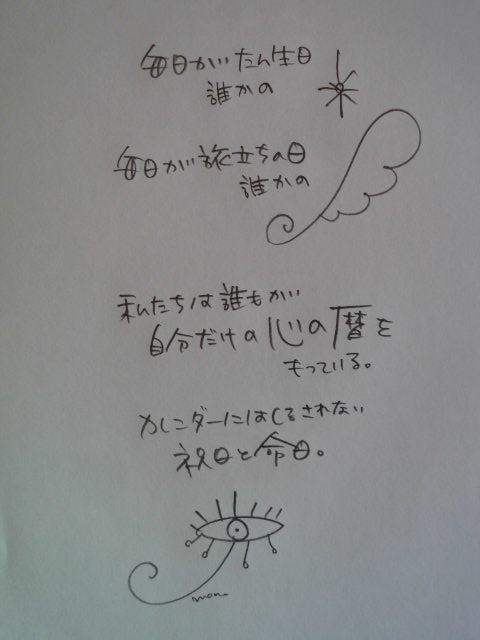 毎日がたん生日
誰かの
毎日が旅立ちの日
誰かの
私たちは誰もが
自分だけの心の暦を
もっている。
カレンダーにはしるされない
祝日と命日。
mon